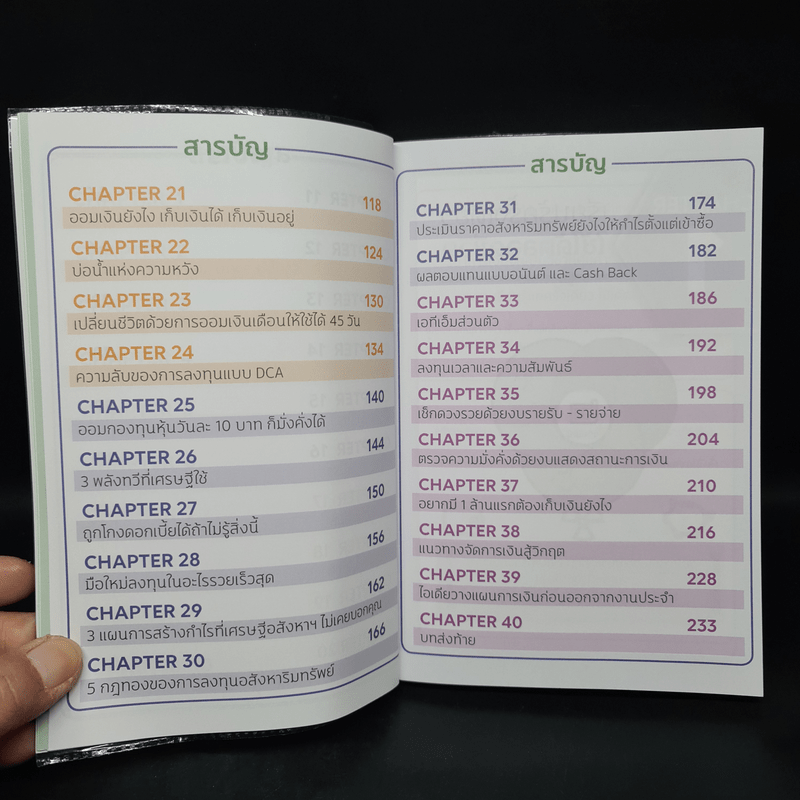 สารบัญ
CHAPTER 21 118
ออมเงินยังไง เก็บเงินได้ เก็บเงินอยู่
CHAPTER 22 124
บ่อน้ำแห่งความหวัง
CHAPTER 23 130
เปลี่ยนชีวิตด้วยการออมเงินเดือนให้ใช้ได้ 45 วัน
CHAPTER 24 134
ความลับของการลงทุนแบบ DCA
CHAPTER 25 140
ออมกองทุนหุ้นวันละ 10 บาท ก็มั่งคั่งได้
CHAPTER 26 144
3 พลังทวีที่เศรษฐีใช้
CHAPTER 27 150
ถูกโกงดอกเบี้ยได้ถ้าไม่รู้สิ่งนี้
CHAPTER 28 156
มือใหม่ลงทุนในอะไรรวยเร็วสุด
CHAPTER 29 162
3 แผนการสร้างกำไรที่เศรษฐีอสังหาฯ ไม่เคยบอกคุณ
CHAPTER 30 166
5 กฎทองของการลงทุนอสังหาริมทรัพย์
สารบัญ
CHAPTER 31 174
ประเมินราคาอสังหาริมทรัพย์ยังไงให้กำไรตั้งแต่เข้าซื้อ
CHAPTER 32 182
ผลตอบแทนแบบอนันต์ และ Cash Back
CHAPTER 33 186
เอทีเอ็มส่วนตัว
CHAPTER 34 192
ลงทุนเวลาและความสัมพันธ์
CHAPTER 35 198
เช็กดวงรวยด้วยงบรายรับ - รายจ่าย
CHAPTER 36 204
ตรวจความมั่งคั่งด้วยงบแสดงสถานะการเงิน
CHAPTER 37 210
อยากมี 1 ล้านแรกต้องเก็บเงินยังไง
CHAPTER 38 216
แนวทางจัดการเงินสู้วิกฤต
CHAPTER 39 228
ไอเดียวางแผนการเงินก่อนออกจากงานประจำ
CHAPTER 40 233
บทส่งท้าย